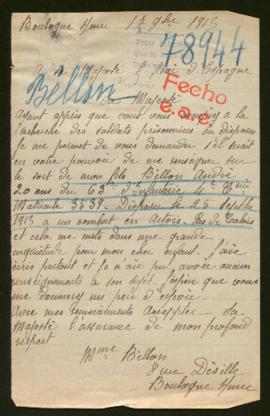 Boulogne s/mer 17 9bre 1915
78944
A sa Majesté le Roi d'Espagne
Bellon
Fecho
Majesté
Ayant appris que vous vous occupez à la
recherche des soldats prisonniers ou disparus
je me permet de vous demander s'il serait
en votre pouvoir de me renseigner sur
le sort de mon fils Bellon André
20 ans du 63e d'Infanterie 4e Cie
Matricule 8539. Disparu le 25 Septbre
1915 a un combat en Artois Pas de Calais
et cela me mets dans une grande
inquiétude pour mon cher enfant. J'ai
écris partout et je n'ai pu avoir aucun
renseignements à son sujet. J'espère que vous
me donnerez un peu d'espoir.
Avec mes remerciements accepter sa
Majesté l'assurance de mon profond
respect
Mme Bellon
8 rue Désille
Boulogne s/mer